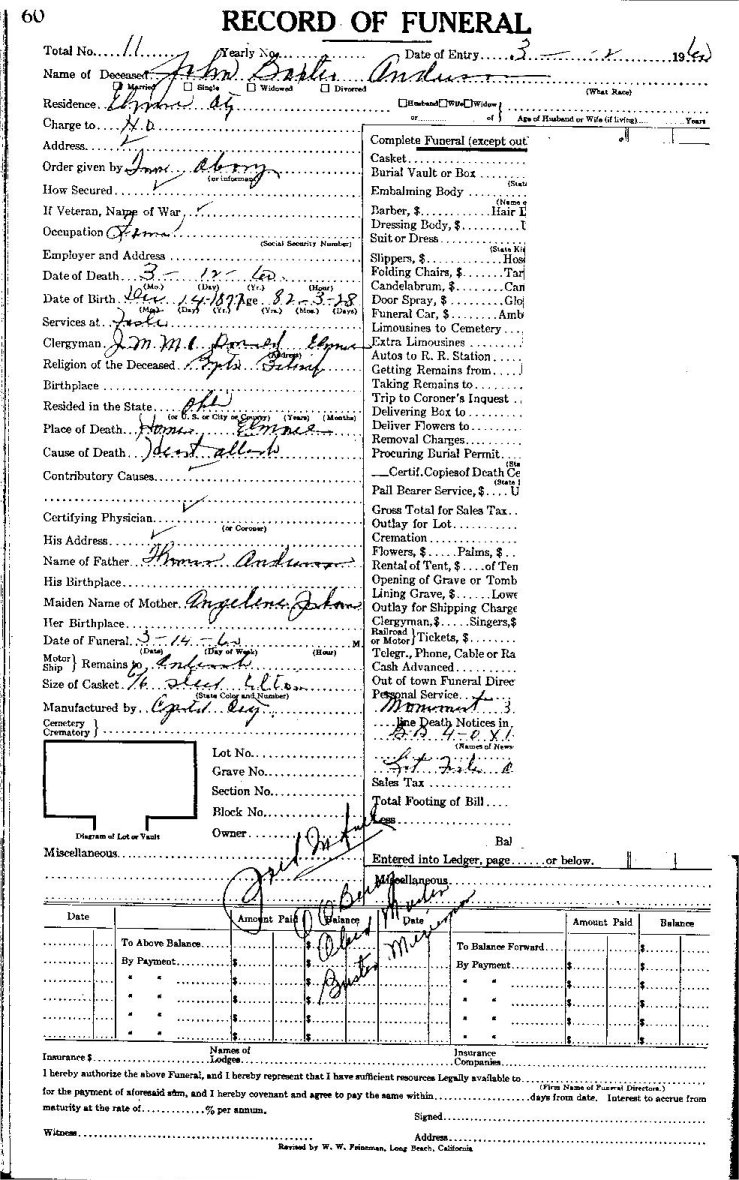 60
RECORD OF FUNERAL
Total No. 11 Yearly No. Date of Entry 3 - - 2 1960
Name of Deceased John Baxter Anderson
Married Single Widowed Divorced (What Race)
Residence Elmore City Husband Wife Widow
or of Age of Husband or Wife (if living) Years
Charge to H.D. Complete Funeral (except out
Address
Casket
Order given by
(or informant)
Burial Vault or Box
(Stat
How Secured Embalming Body
(Name o
If Veteran, Name of War Barber, $ Hair D
Dressing Body, $
Occupation
(Social Security Number)
Suit or Dress
(State Ki
Employer and Address Slippers, $ Hos
Date of Death 3 - 12 - 60 Folding Chairs, $ Tar
(Mo.) (Day) (Yr.) (Hour)
Candelabrum, $ Can
Date of Birth Dec 14-1877 Age 82-3-28 Door Spray, $ Glo
(Mo.) (Day) (Yr.) (Yrs.) (Mos.) (Days)
Funeral Car, $ Amb
Services at Limousines to Cemetery
Clergyman J. M. Mc Donald Elmore Extra Limousines
(Address)
Autos to R. R. Station
Religion of the Deceased Getting Remains from
Birthplace Taking Remains to
Trip to Coroner's Inquest
Resided in the State
(or U. S. or City or County) (Years) (Months)
Delivering Box to
Place of Death Home Elmore Deliver Flowers to
Removal Charges
Cause of Death Heart attack Procuring Burial Permit
(Sta
Contributory Causes Certif. Copies of Death Ce
(State
Pall Bearer Service, $ U
Gross Total for Sales Tax
Certifying Physician
(or Coroner)
Outlay for Lot
His Address Cremation
Flowers, $ Palms, $
Name of Father Thomas Anderson Rental of Tent, $ of Ten
His Birthplace Opening of Grave or Tomb
Lining Grave, $ Lowe
Maiden Name of Mother Angelene Outlay for Shipping Charge
Her Birthplace Clergyman, $ Singers, $
Date of Funeral 3-14-60 M.
(Date) (Day of Week) (Hour)
Railroad or Motor Tickets, $
Telegr., Phone, Cable or Ra
Motor Ship Remains to Cash Advanced
Size of Casket 6/6 Steel
(State Color and Number)
Out of town Funeral Direc
Personal Service
Manufactured by Monument 3
Cemetery Crematory line Death Notices in
(Names of News
Lot No.
Grave No.
Section No. Sales Tax
Block No. Total Footing of Bill
Diagram of Lot or Vault
Owner
Less
Bal
Miscellaneous Entered into Ledger, page or below.
Miscellaneous
Date Amount Paid Balance Date Amount Paid Balance
To Above Balance $ To Balance Forward $
By Payment $ $ By Payment $ $
" " $ $ " " $ $
" " $ $ " " $ $
" " $ $ " " $ $
" " $ $ " " $ $
Insurance $ Names of Lodges Insurance Companies
I hereby authorize the above Funeral, and I hereby represent that I have sufficient resources Legally available to
(Firm Name of Funeral Directors.)
for the payment of aforesaid sum, and I hereby covenant and agree to pay the same within days from date. Interest to accrue from
maturity at the rate of % per annum.
Signed
Witness Address
Revised by W. W. Feineman, Long Beach, California